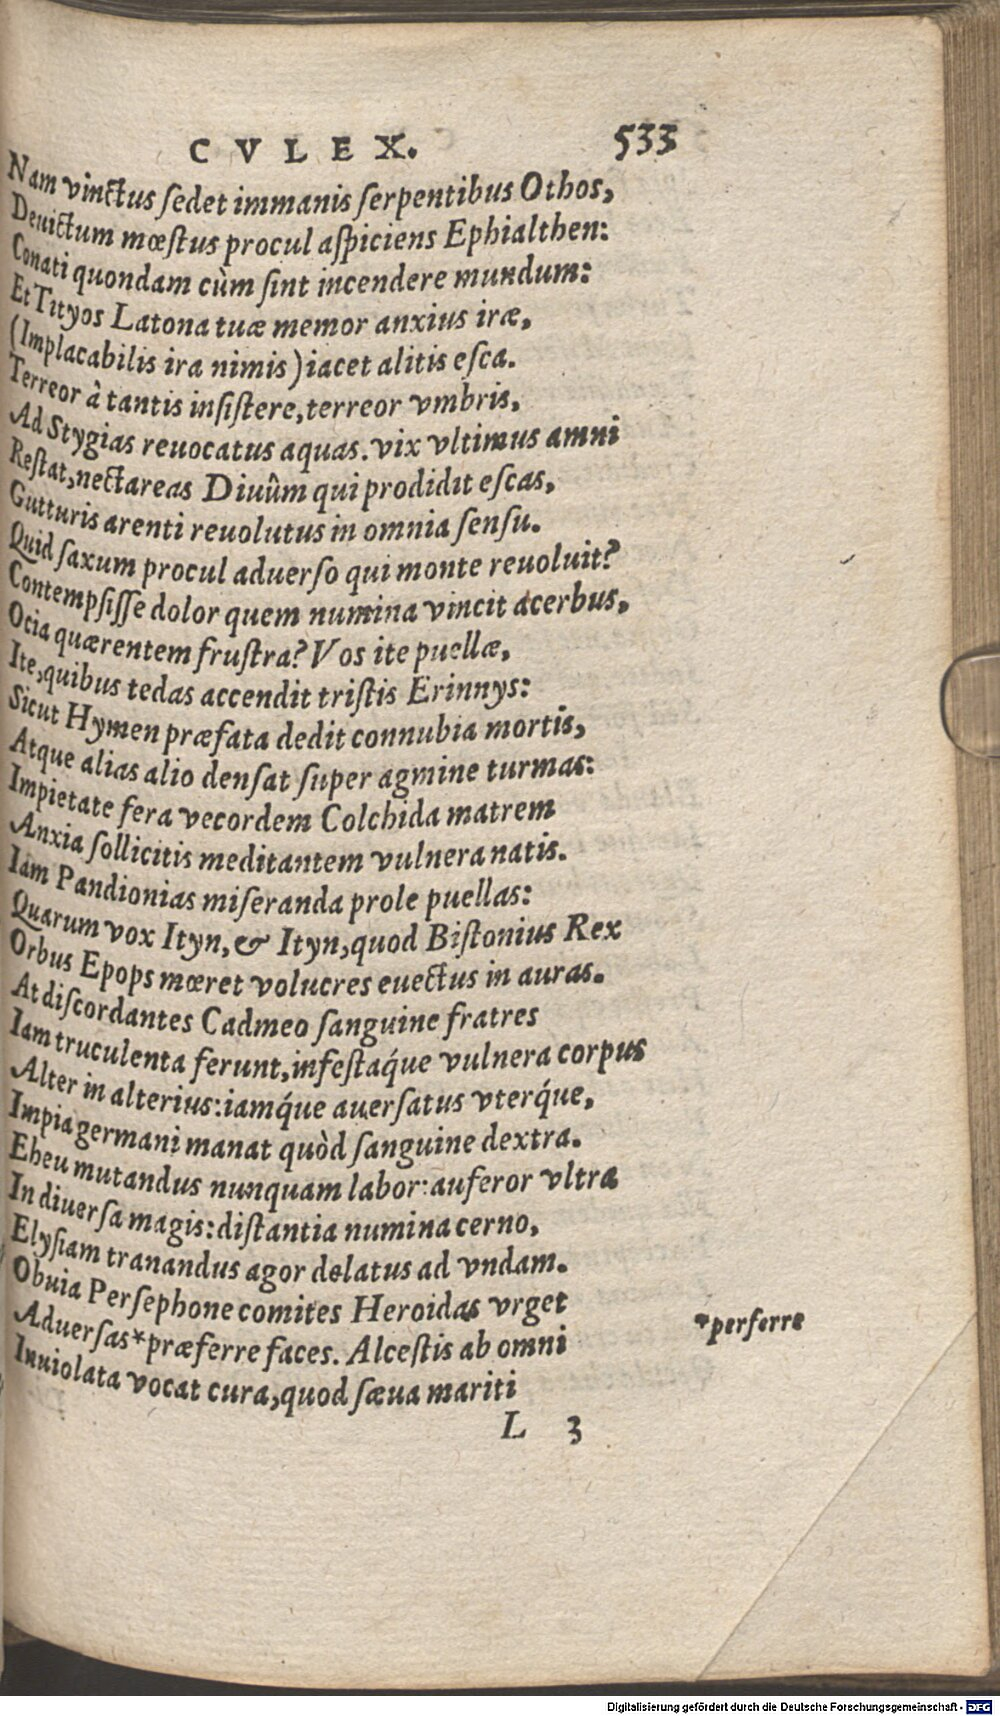 CVLEX. 533
Nam vinctus ſedet immanis ſerpentibus Othos,
Deuictum mœſtus procul aſpiciens Ephialthen:
Conati quondam cùm ſint incendere mundum:
Et Tityos Latona tuæ memor anxius iræ,
(Implacabilis ira nimis) iacet alitis eſca.
Terreor à tantis inſiſtere, terreor vmbris,
Ad Stygias reuocatus aquas. vix vltimus amni
Reſtat, nectareas Diuûm qui prodidit eſcas,
Gutturis arenti reuolutus in omnia ſenſu.
Quid ſaxum procul aduerſo qui monte reuoluit?
Contempſiſſe dolor quem numina vincit acerbus,
Ocia quærentem fruſtra? Vos ite puellæ,
Ite, quibus tedas accendit triſtis Erinnys:
Sicut Hymen præfata dedit connubia mortis,
Atque alias alio denſat ſuper agmine turmas:
Impietate fera vecordem Colchida matrem
Anxia ſollicitis meditantem vulnera natis.
Iam Pandionias miſeranda prole puellas:
Quarum vox Ityn, & Ityn, quod Biſtonius Rex
Orbus Epops mœret volucres euectus in auras.
At diſcordantes Cadmeo ſanguine fratres
Iam truculenta ferunt, infeſtaq́ue vulnera corpus
Alter in alterius: iamq́ue auerſatus vterq́ue,
Impia germani manat quòd ſanguine dextra.
Eheu mutandus nunquam labor: auferor vltra
In diuerſa magis: diſtantia numina cerno,
Elyſiam tranandus agor delatus ad vndam.
Obuia Perſephone comites Heroidas vrget
Aduerſas* præferre faces. Alceſtis ab omni
*perferre
Inuiolata vocat cura, quod ſæua mariti
L 3
Digitalisierung gefördert durch die Deutsche Forschungsgemeinschaft - DFG